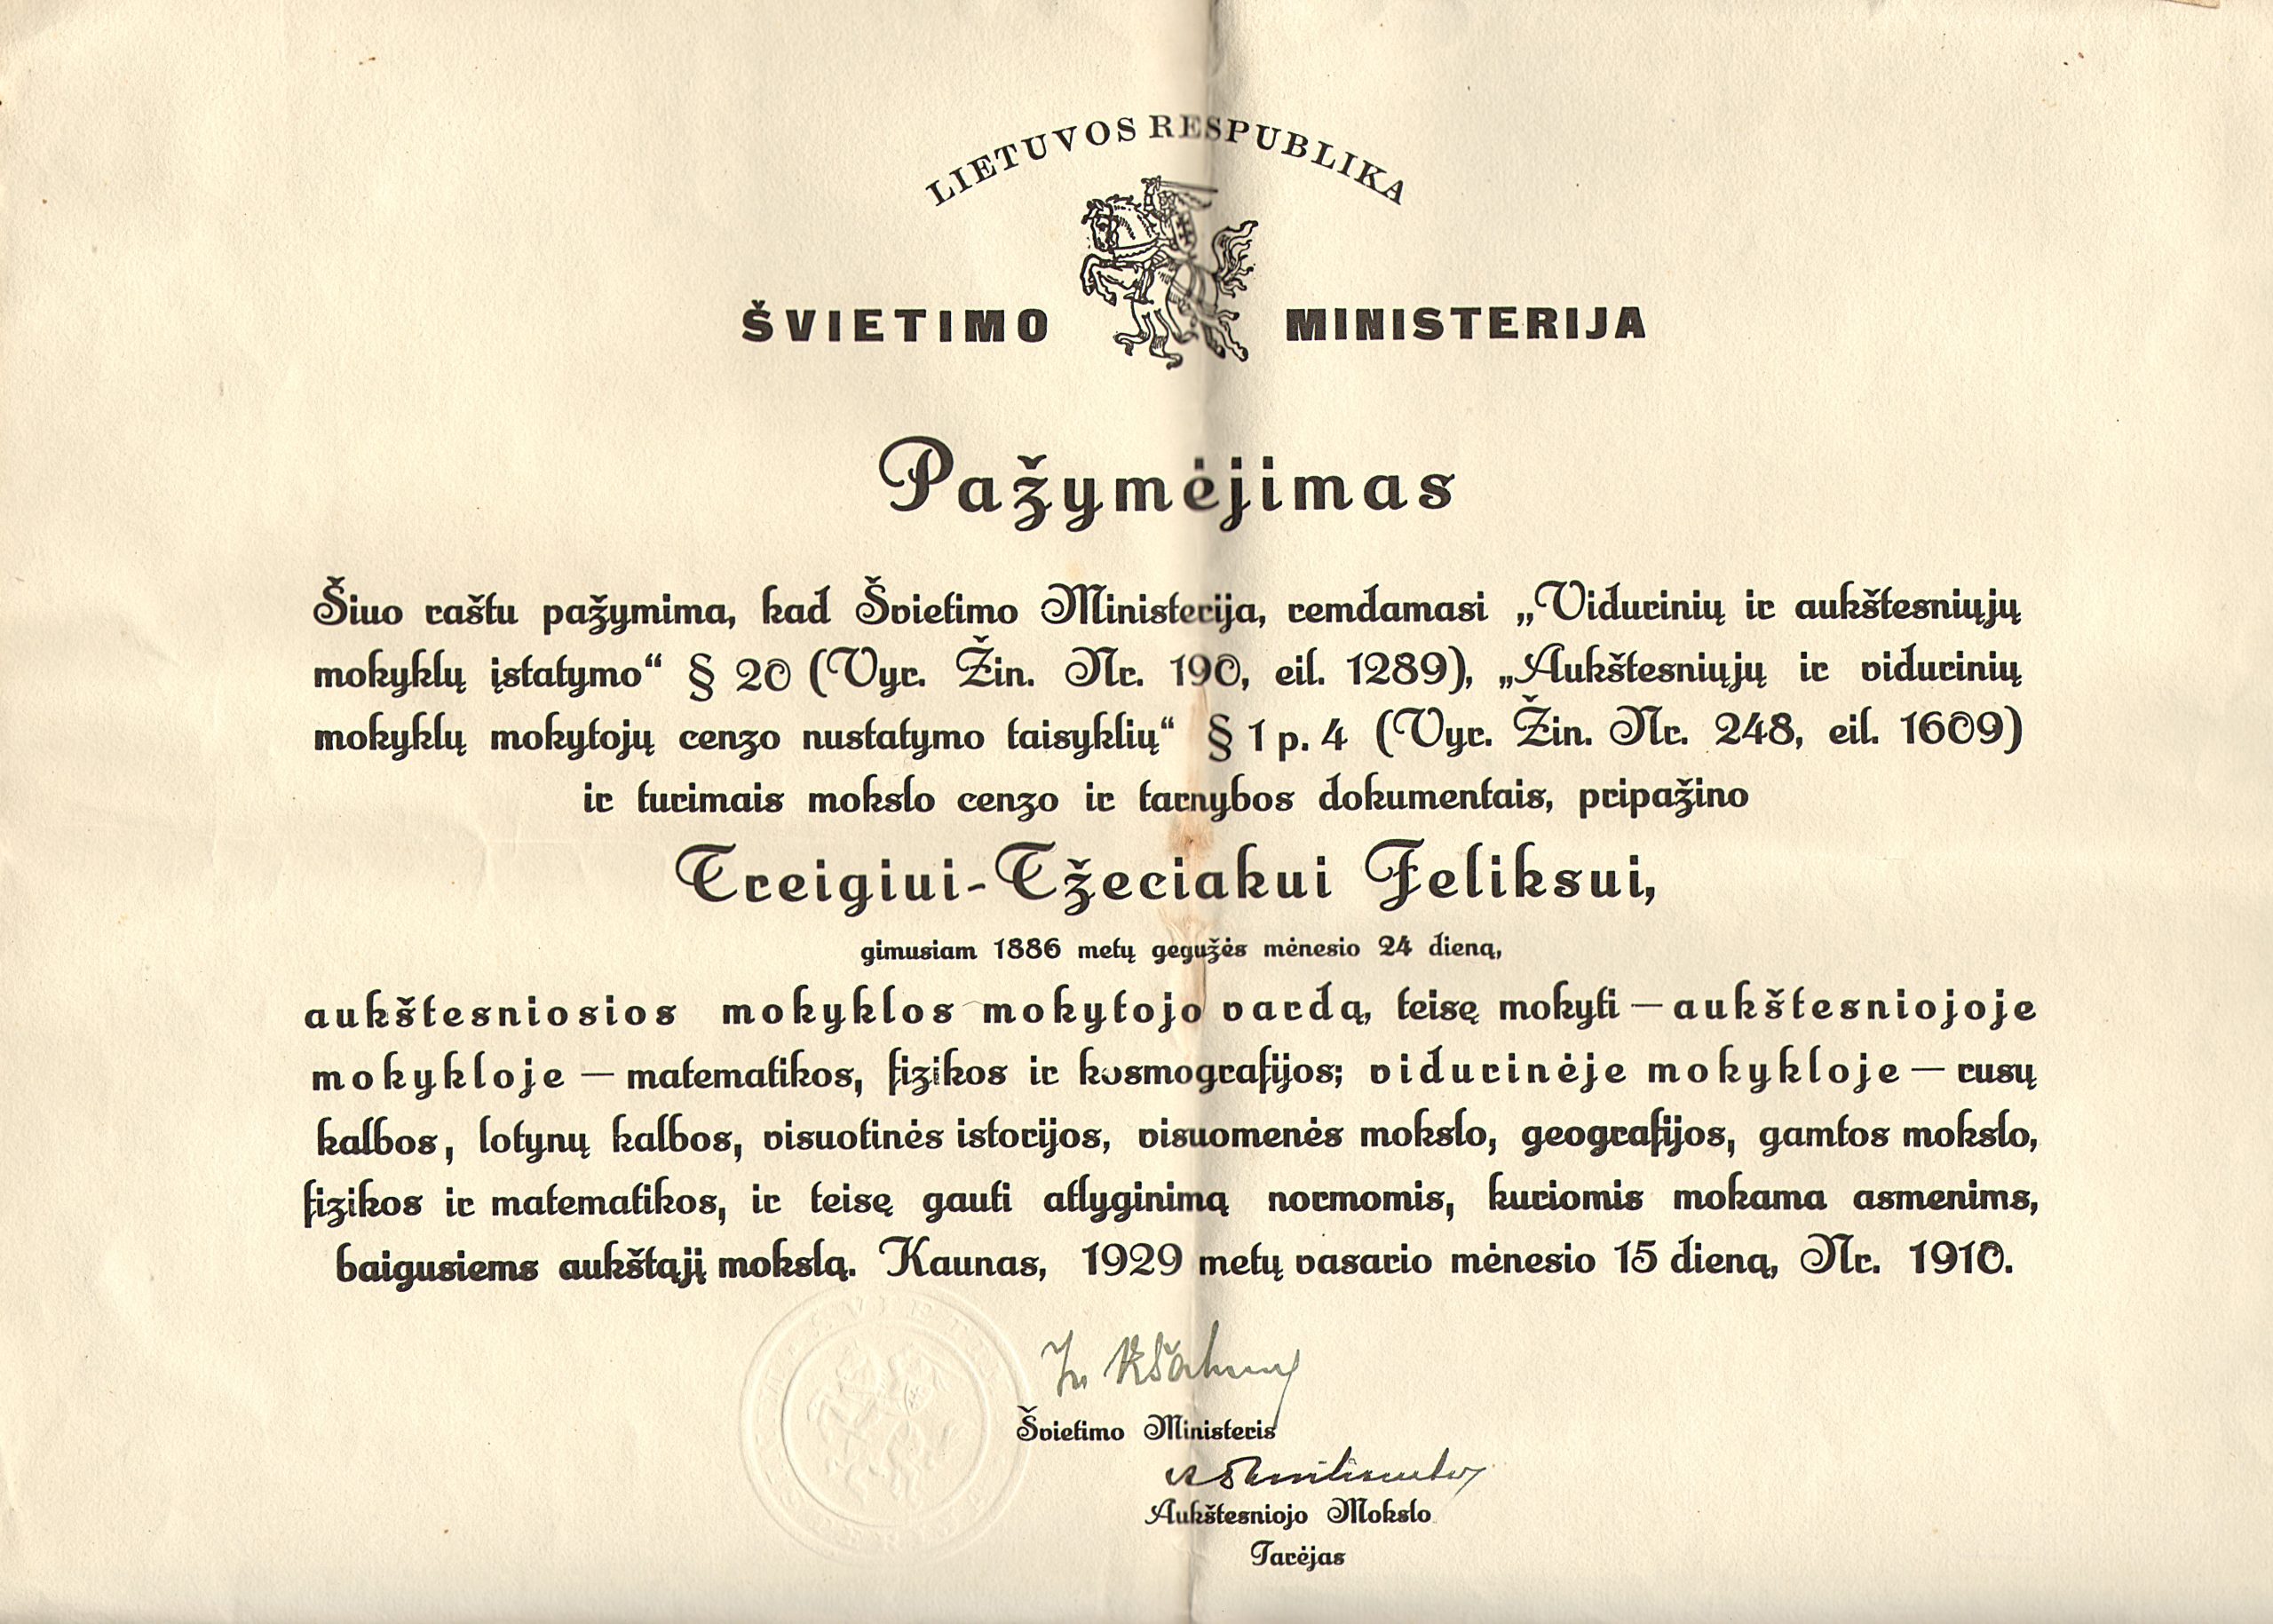 LIETUVOS RESPUBLIKA
ŠVIETIMO MINISTERIJA
Pažymėjimas
Šiuo raštu pažymima, kad Švietimo Ministerija, remdamasi „Vidurinių ir aukštesniųjų
mokyklų įstatymo“ § 20 (Vyr. Žin. Nr. 190, eil. 1289), „Aukštesniųjų ir vidurinių
mokyklų mokytojų cenzo nustatymo taisyklių“ § 1 p. 4 (Vyr. Žin. Nr. 248, eil. 1609)
ir turimais mokslo cenzo ir tarnybos dokumentais, pripažino
Treigiui-Tžeciakui Feliksui,
gimusiam 1886 metų gegužės mėnesio 24 dieną,
aukštesniosios mokyklos mokytojo vardą, teisę mokyti — aukštesniojoje
mokykloje — matematikos, fizikos ir kosmografijos; vidurinėje mokykloje — rusų
kalbos, lotynų kalbos, visuotinės istorijos, visuomenės mokslo, geografijos, gamtos mokslo,
fizikos ir matematikos, ir teisę gauti atlyginimą normomis, kuriomis mokama asmenims,
baigusiems aukštąjį mokslą. Kaunas, 1929 metų vasario mėnesio 15 dieną, Nr. 1910.
Švietimo Ministeris
Aukštesniojo Mokslo
Tarėjas